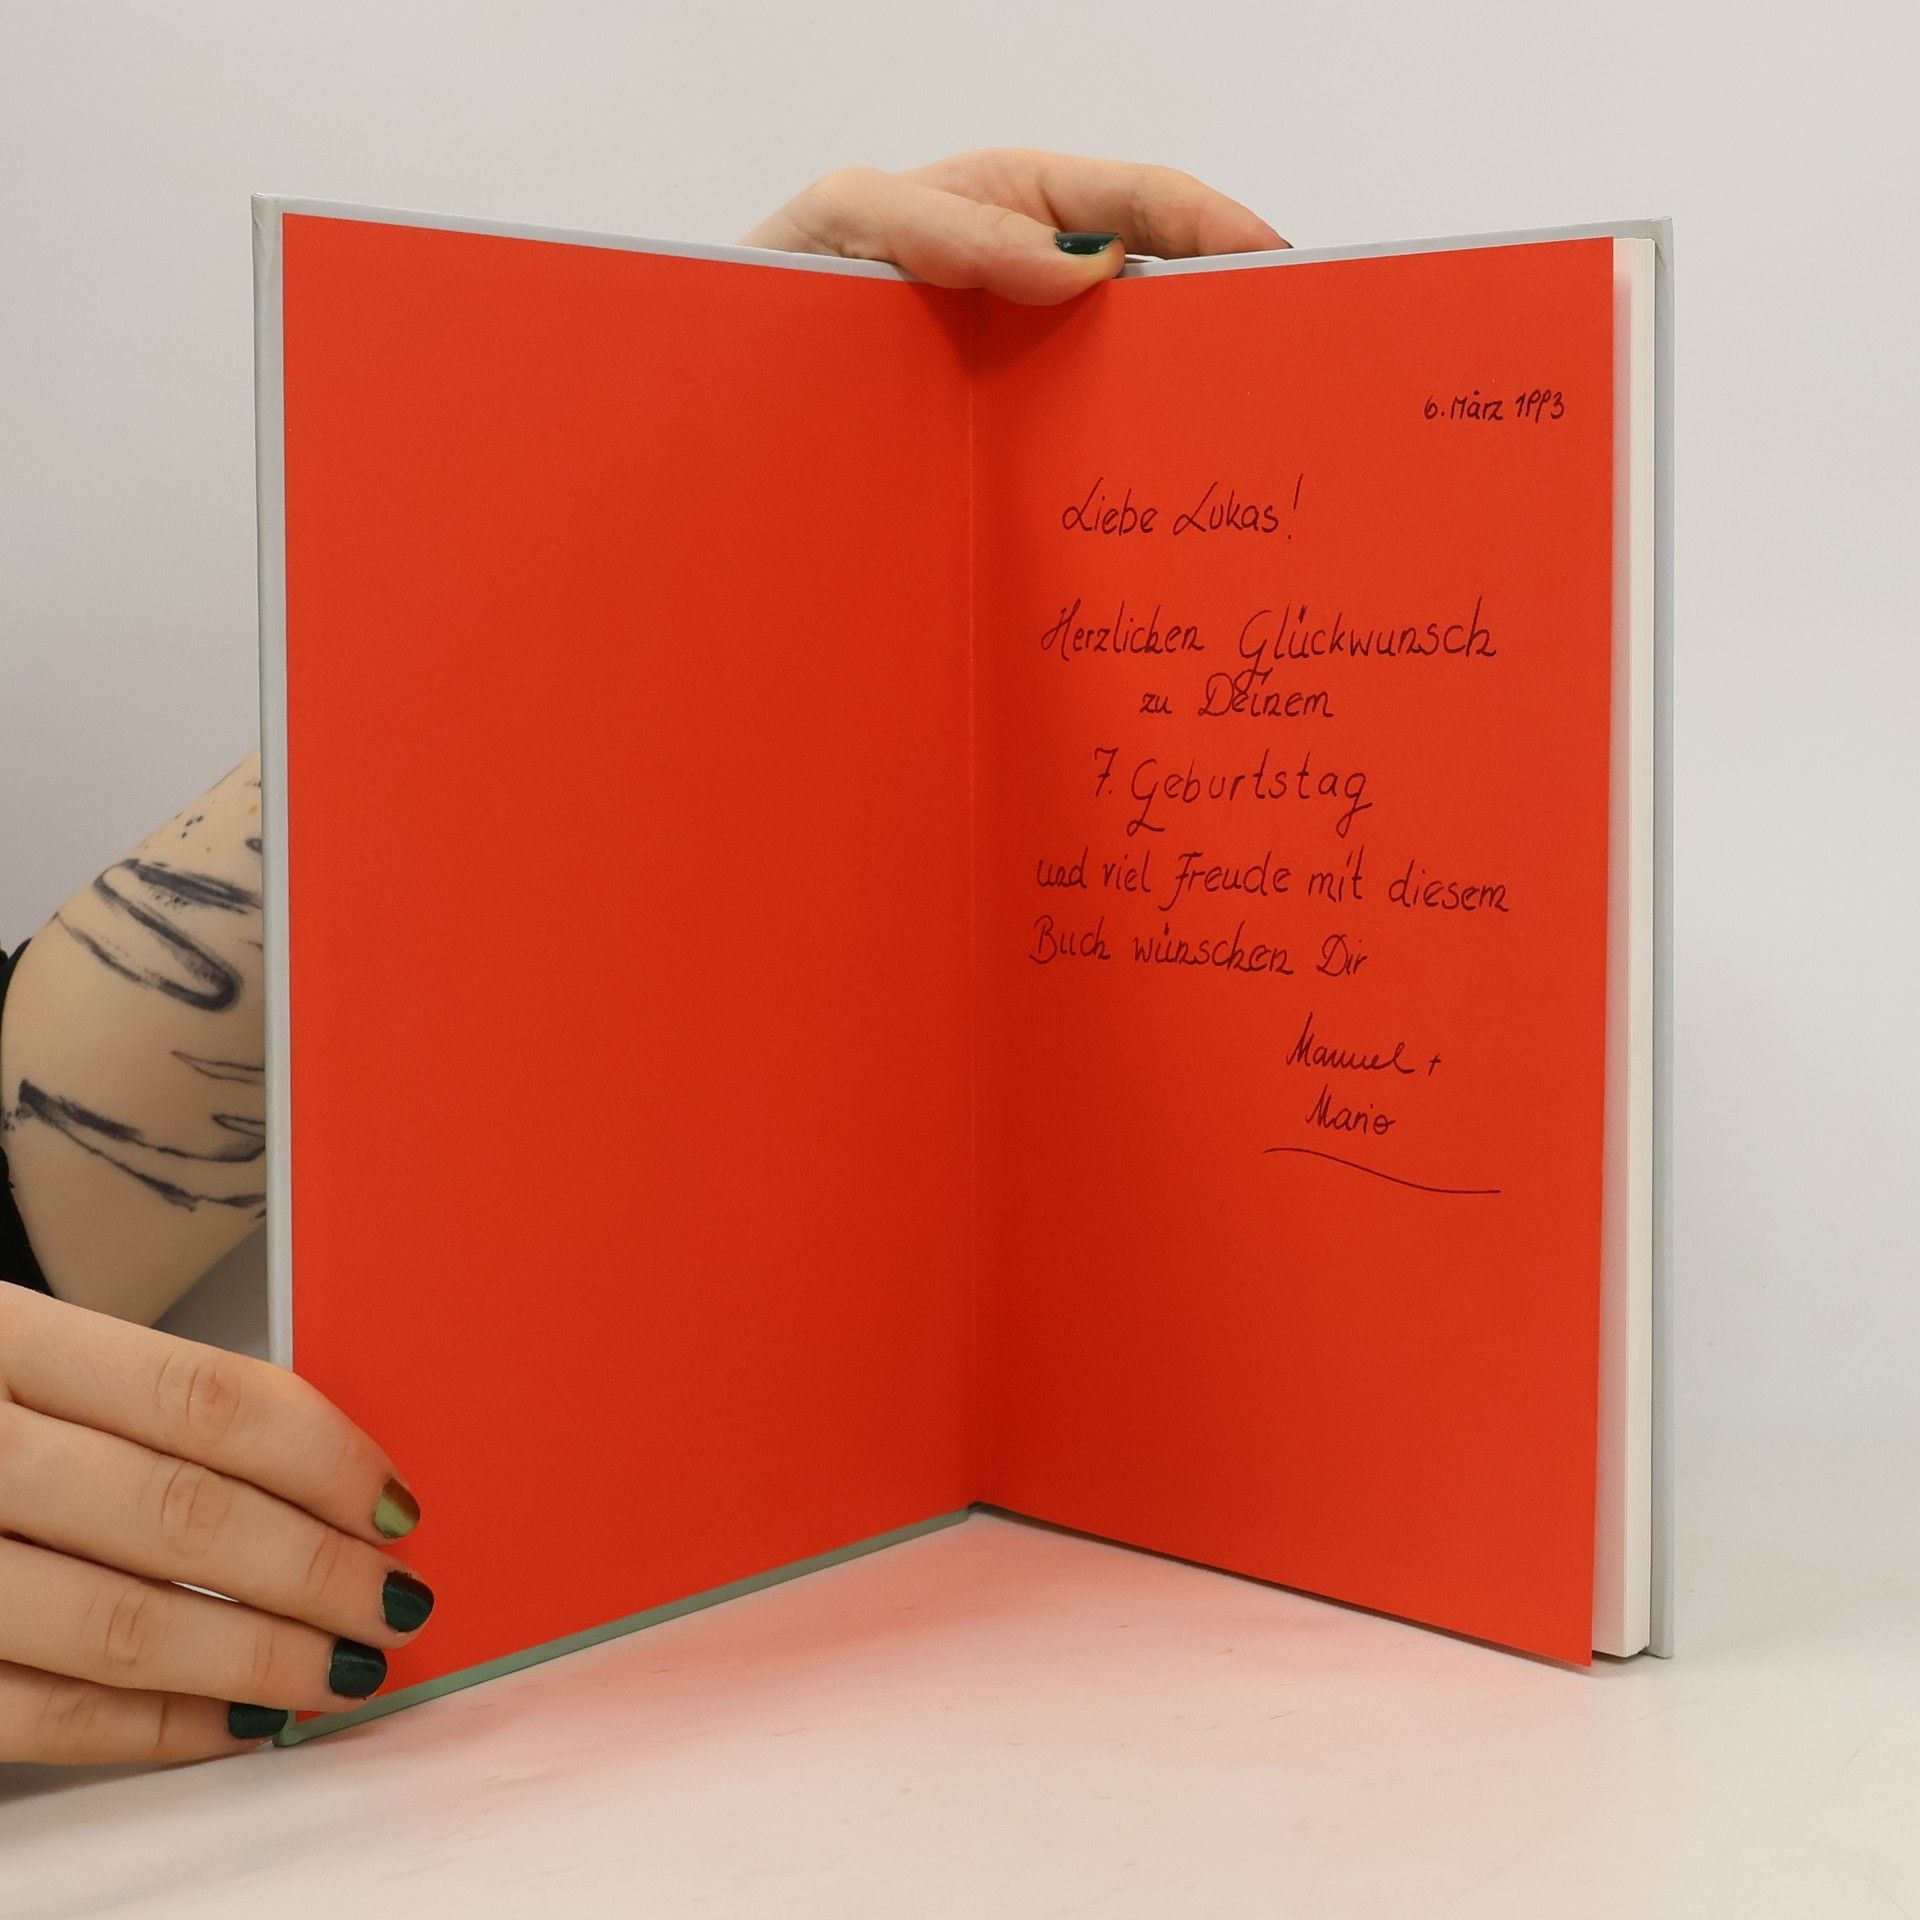 6. März 1993
Liebe Lukas!
Herzlichen Glückwunsch
zu Deinem
7. Geburtstag
und viel Freude mit diesem
Buch wünschen Dir
Manuel +
Mario